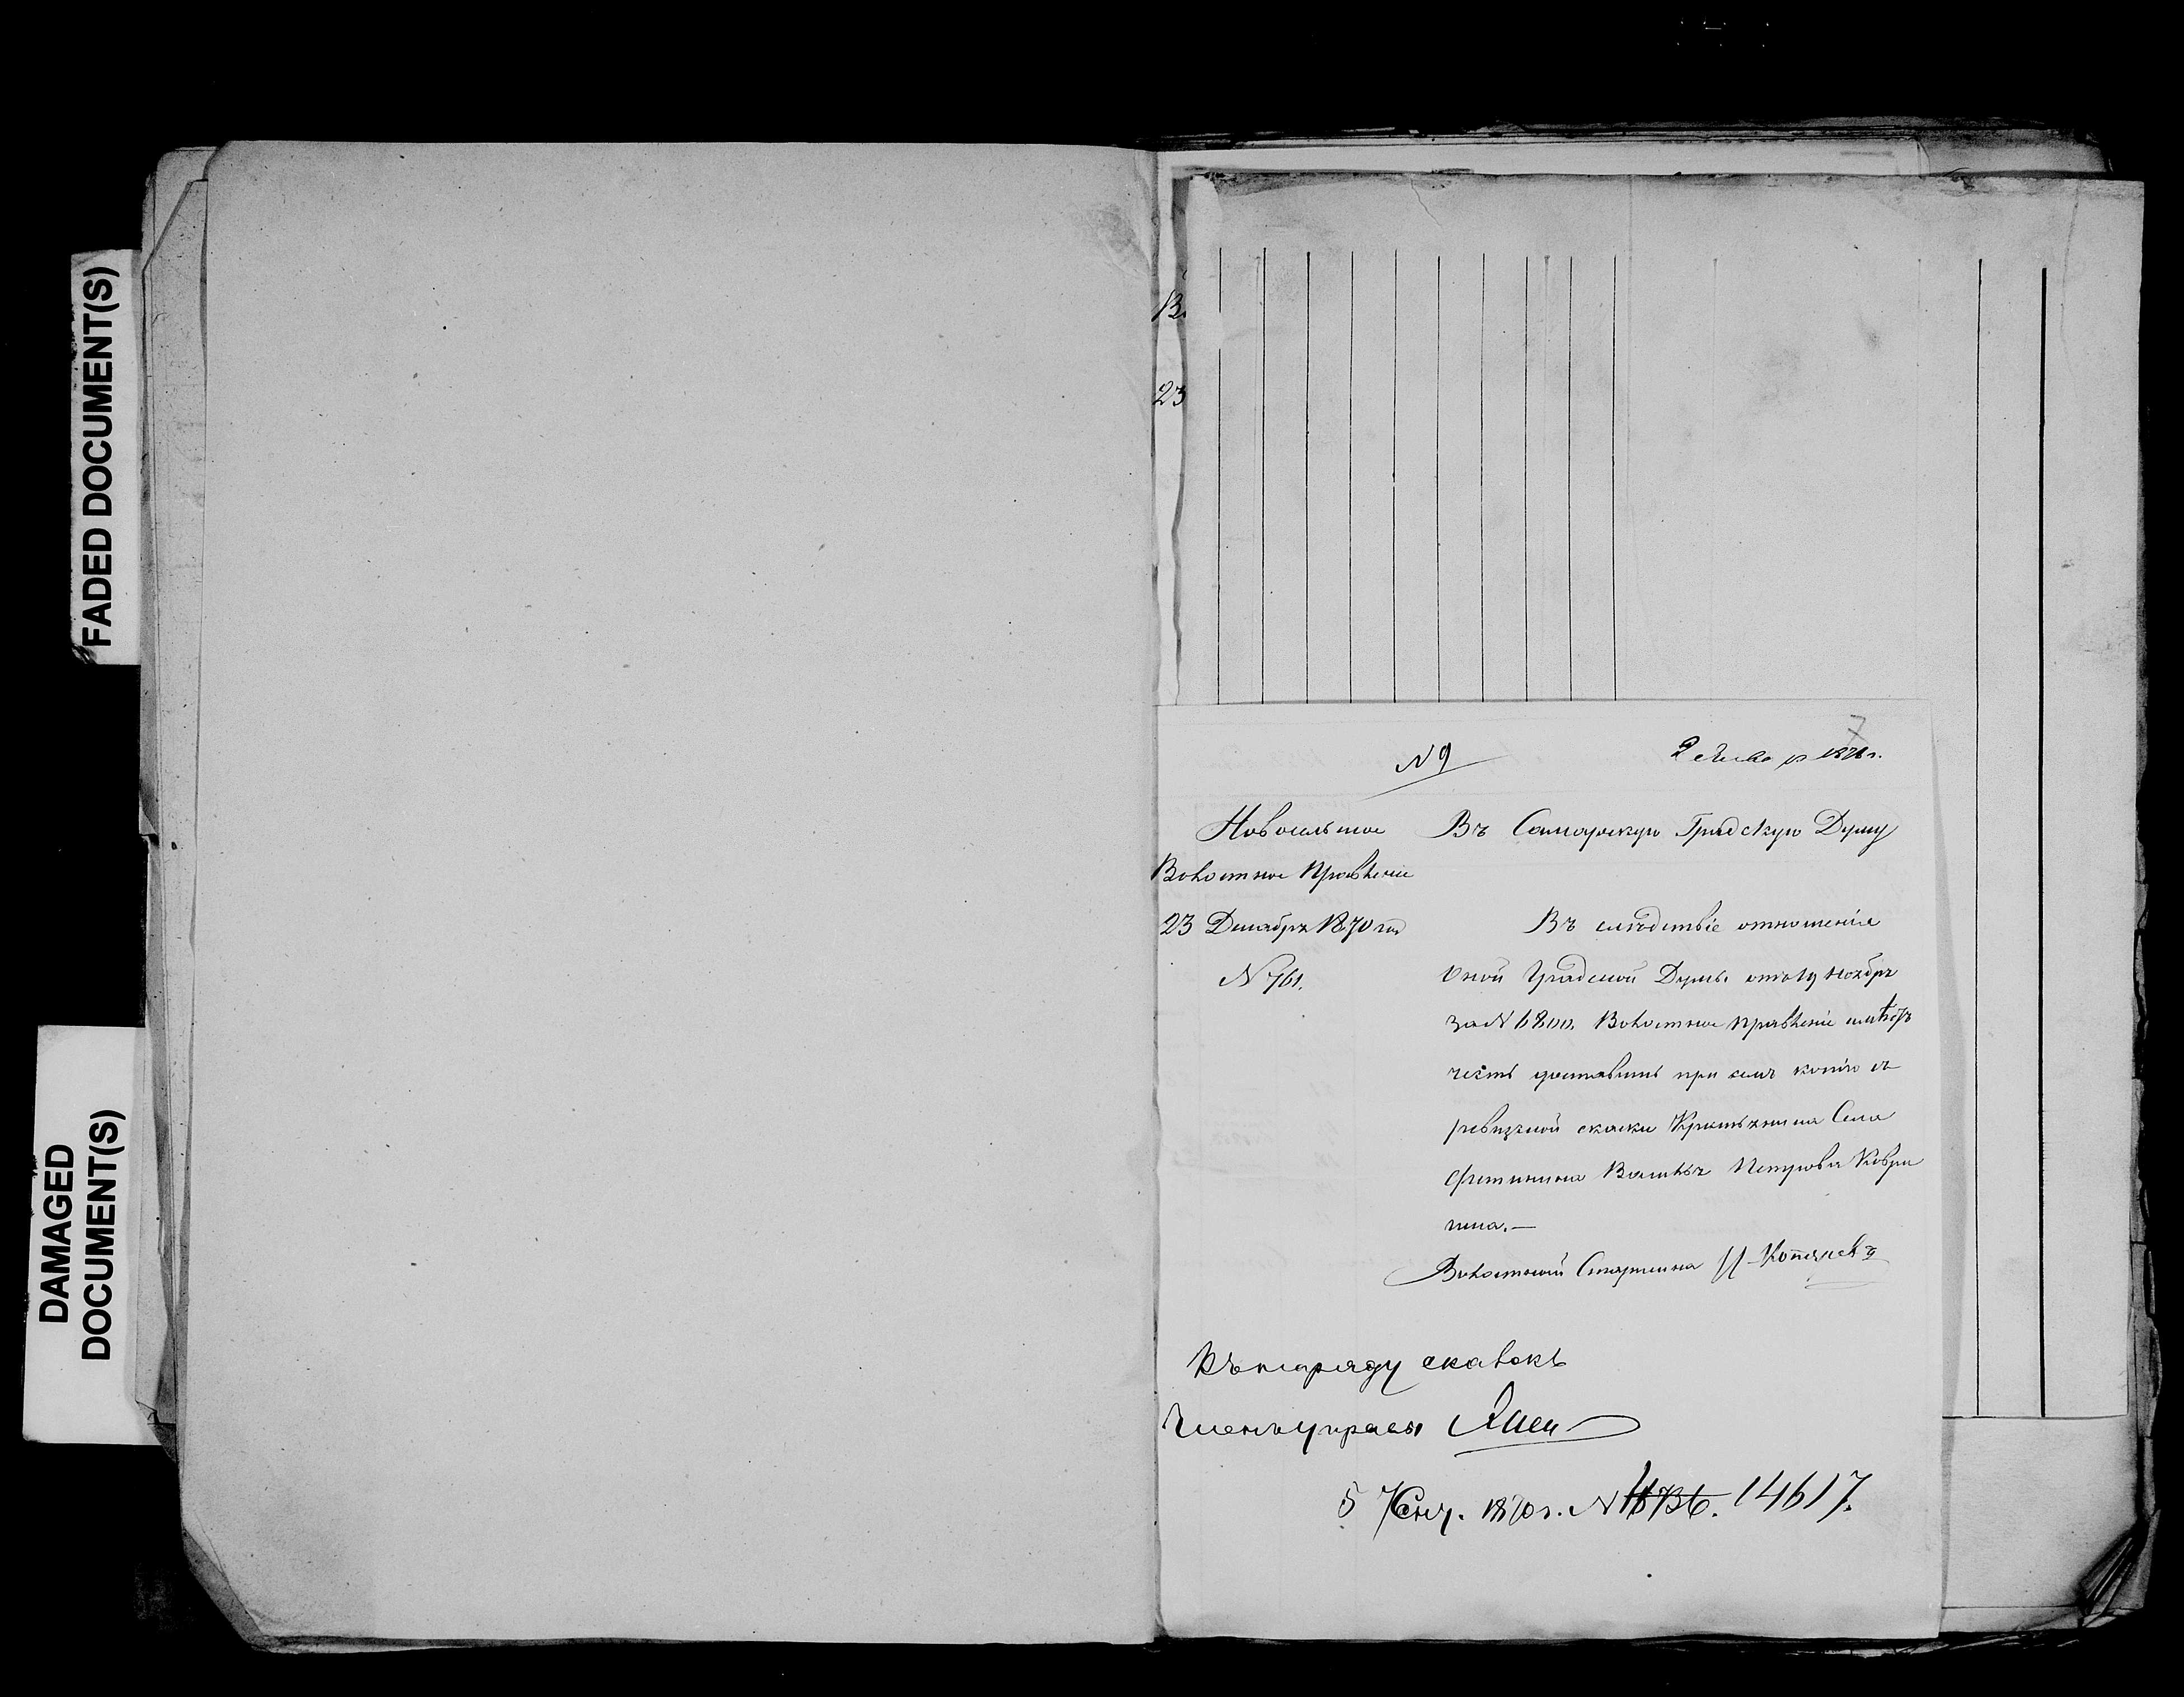 FADED DOCUMENT(S)
DAMAGED
DOCUMENT(S)
В.
23
7
N 9
2 Января 1871 г.
Новосельное
Волостное Правленіе
23 Декабря 1870 года
N 761.
Въ Самарскую Градскую Думу
Въ слѣдствіе отношенія
Оной Градской Думы отъ 19 Ноября
за N 6800. Волостное правленіе имѣетъ
честь доставить при семъ копію съ
ревизской скаски Крестьянина Села
Васильа Петрова Кобри
нина.—
Волостной Старшина
Къ наряду сказокъ
Членъ управы
5 Янв. 1870 г. N 14617.